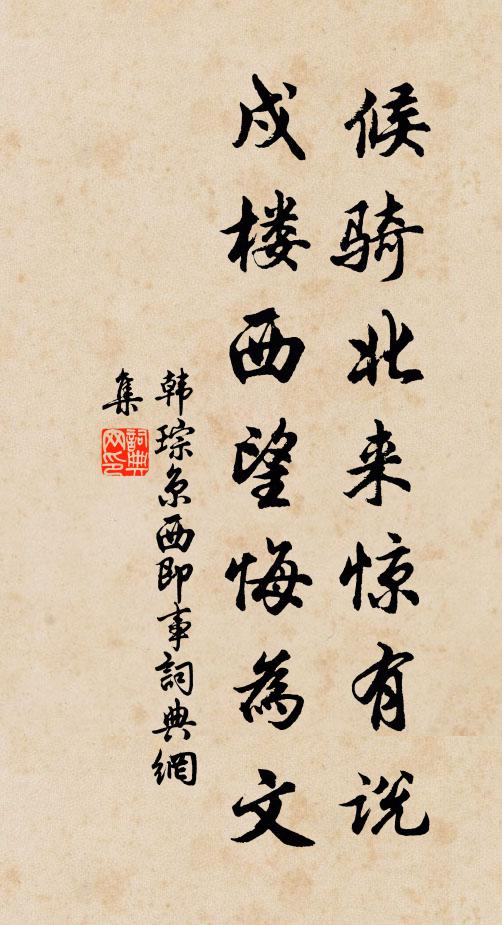 候骑北来惊有说
戍楼西望悔为文
韩琮京西即事詞典網
集
詞典網印